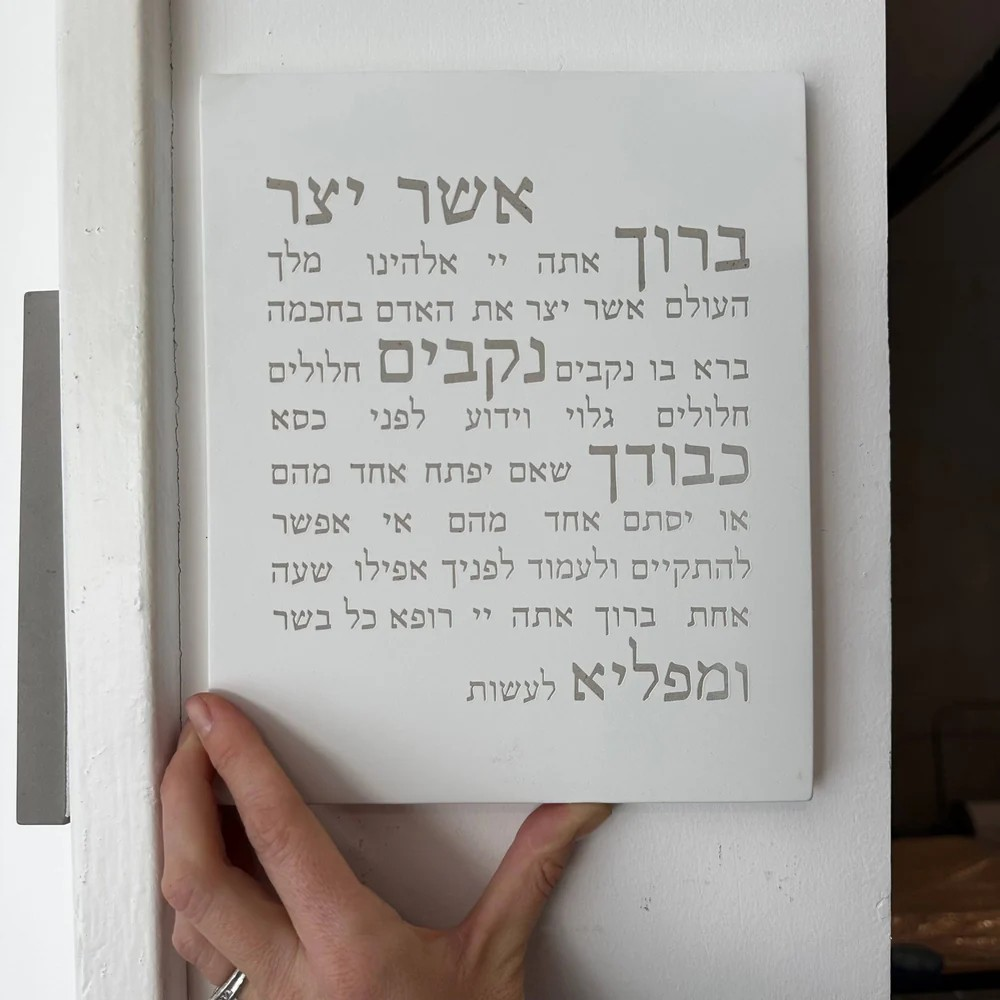 אשר יצר
ברוך אתה יי אלהינו מלך
העולם אשר יצר את האדם בחכמה
ברא בו נקבים נקבים חלולים
חלולים גלוי וידוע לפני כסא
כבודך שאם יפתח אחד מהם
או יסתם אחד מהם אי אפשר
להתקיים ולעמוד לפניך אפילו שעה
אחת ברוך אתה יי רופא כל בשר
ומפליא לעשות